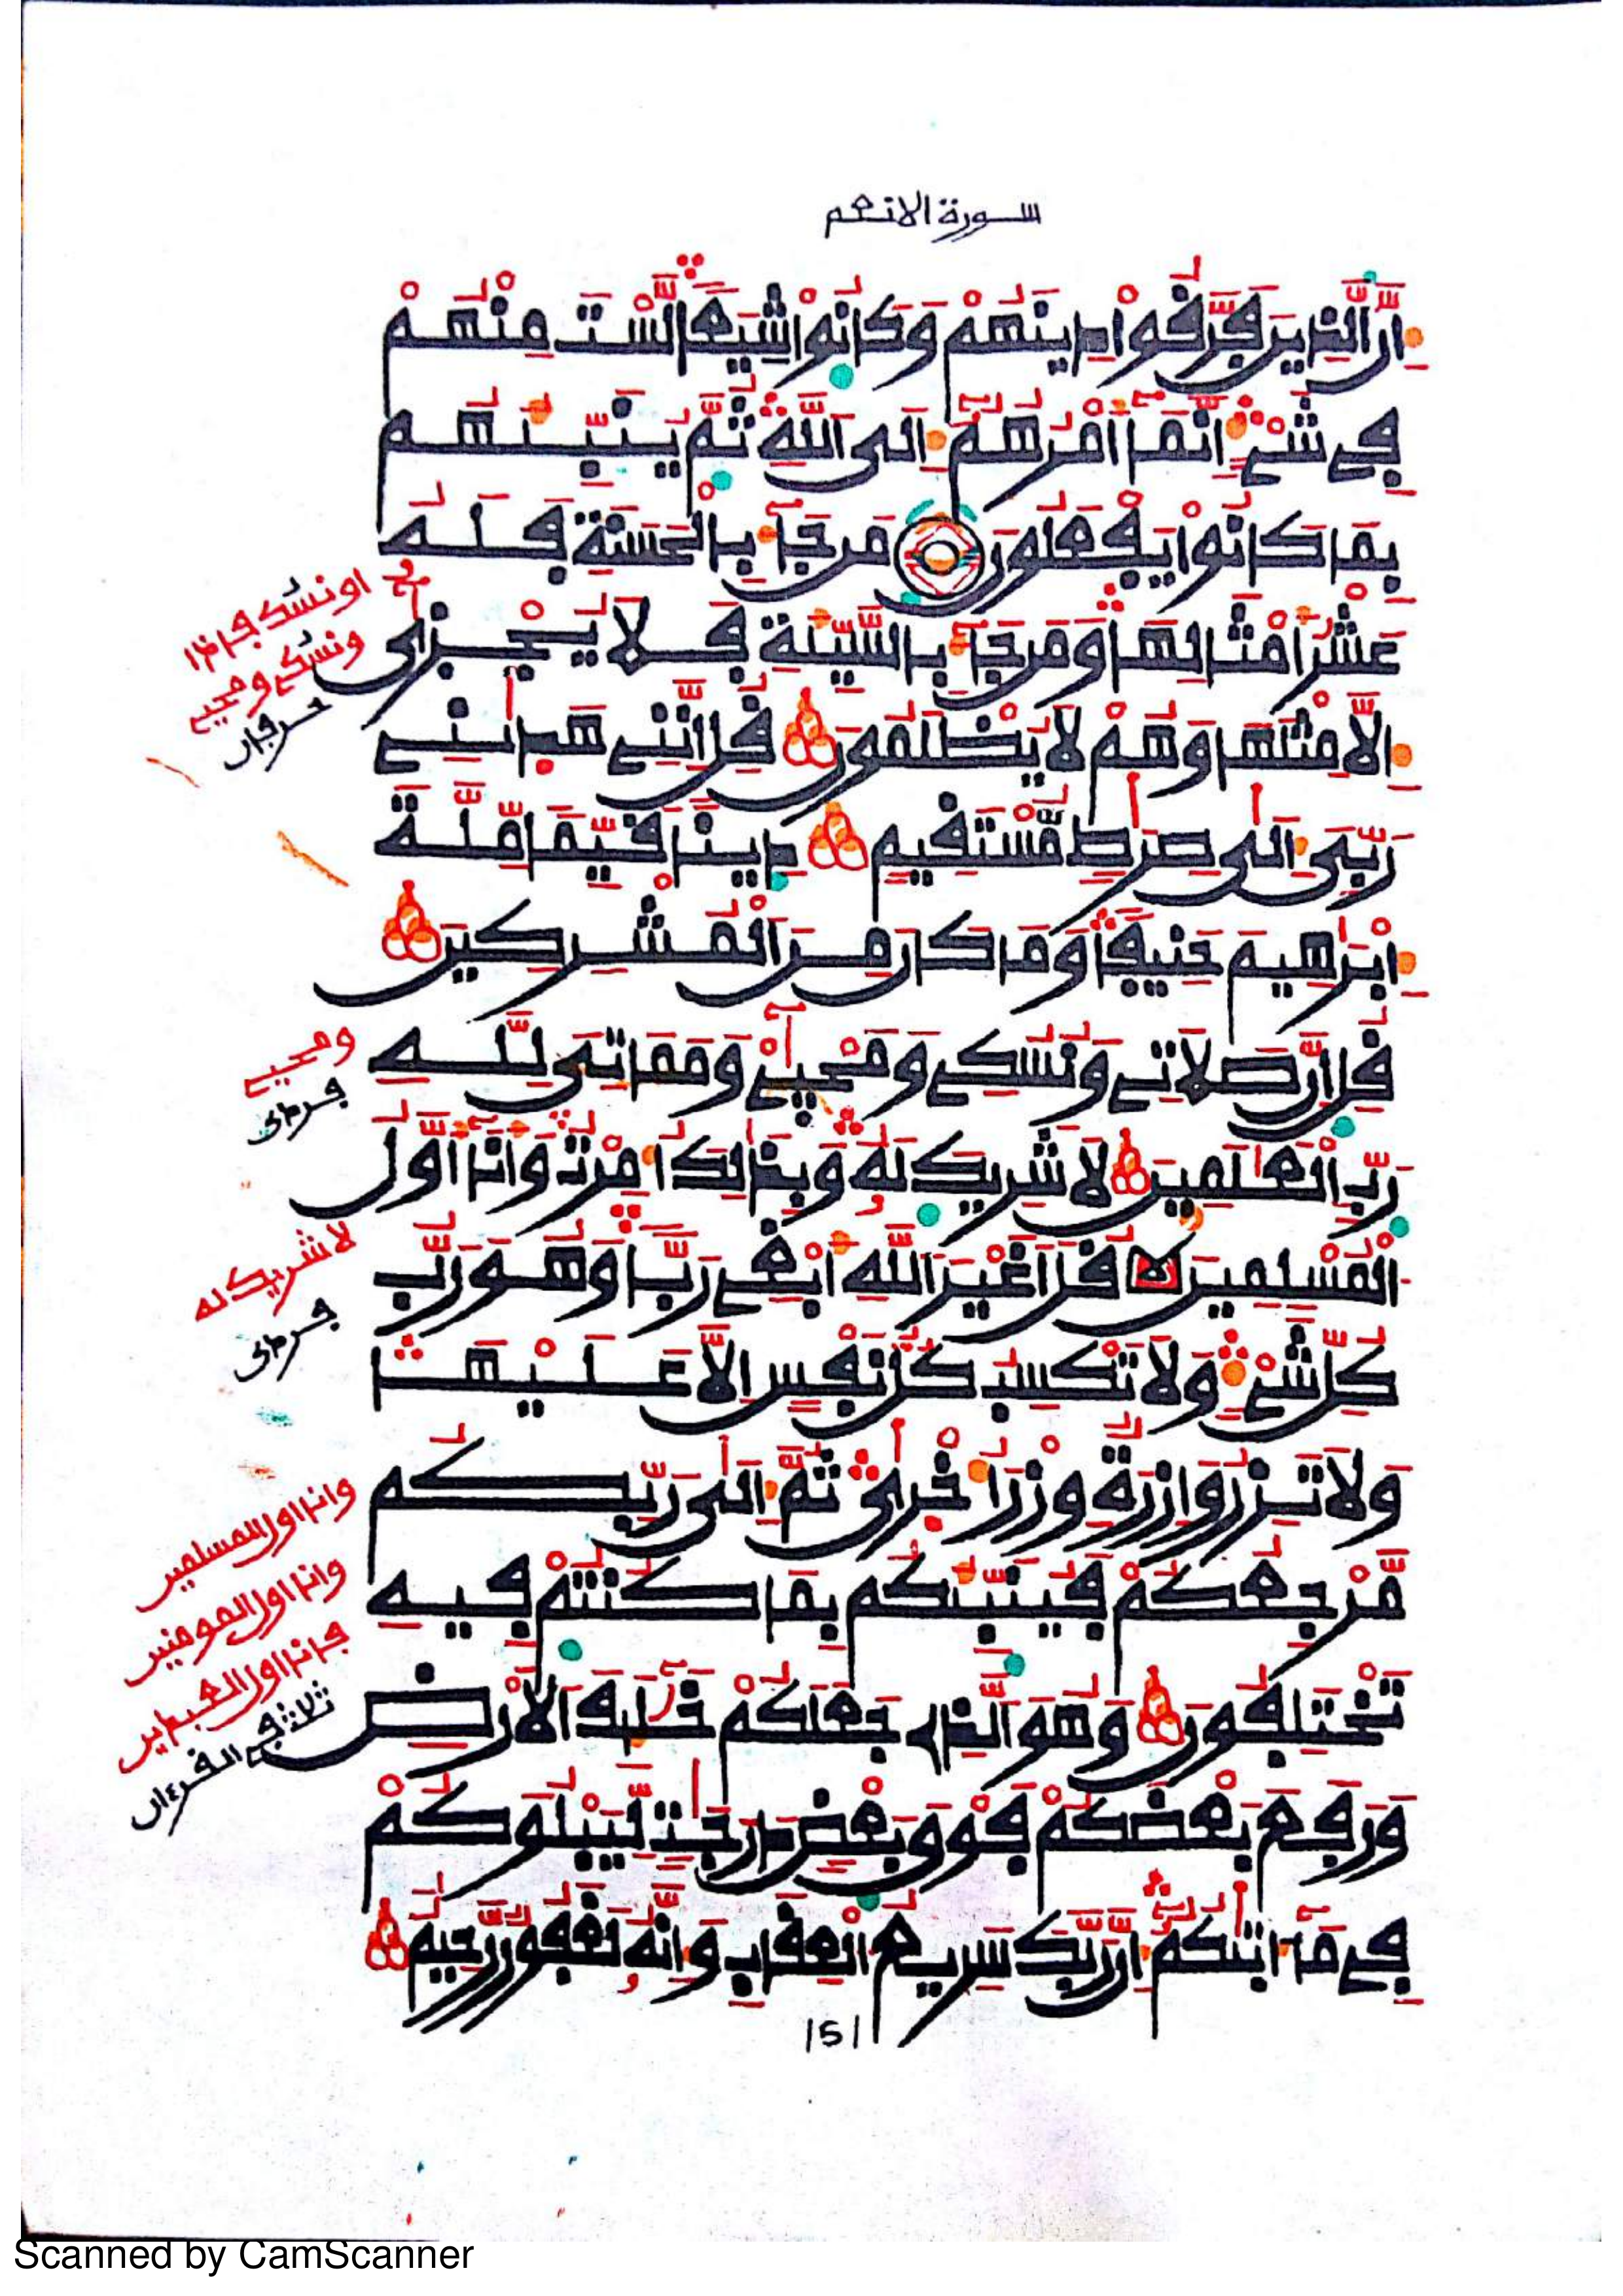 سورة الانعم
اِنَّ اَلذِينَ فَرَّقُواْ دِينَهُمْ وَكَانُواْ شِيَعاً لَّسْتَ مِنْهُمْ
فِے شَےْءٍ اِنَّمَآ أَمْرُهُمُۥٓ إِلَى اَللَّهِ ثُمَّ يُنَبِّئُهُم
بِمَا كَانُواْ يَفْعَلُونَ مَن جَآءَ بِالْحَسَنَةِ فَلَهُۥ
عَشْرُ أَمْثَالِهَا وَمَن جَآءَ بِالسَّيِّئَةِ فَلَا يُجْزَىٰٓ
إِلَّا مِثْلَهَا وَهُمْ لَا يُظْلَمُونَ قُلِ اِنَّنِے هَدَىٰنِے
رَبِّىَ إِلَىٰ صِرَٰطٍ مُّسْتَقِيمٍ دِيناً قَيِّماً مِّلَّةَ
إِبْرَٰهِيمَ حَنِيفاً وَمَا كَانَ مِنَ اَلْمُشْرِكِينَ
قُلِ اِنَّ صَلَاتِے وَنُسُكِے وَمَحْيَآےْ وَمَمَاتِىَ لِلهِ
رَبِّ اِلْعَٰلَمِينَ لَا شَرِيكَ لَهُۥ وَبِذَٰلِكَ أُمِرْتُ وَأَنَآ أَوَّلُ
اُلْمُسْلِمِينَ قُلَ اَغَيْرَ اَللَّهِ أَبْغِے رَبّاً وَهُوَ رَبُّ
كُلِّ شَےْءٍ وَلَا تَكْسِبُ كُلُّ نَفْسٍ اِلَّا عَلَيْهَا
وَلَا تَزِرُ وَازِرَةٌ وِزْرَ أُخْرَىٰ ثُمَّ إِلَىٰ رَبِّكُم
مَّرْجِعُكُمْ فَيُنَبِّئُكُم بِمَا كُنتُمْ فِيهِ
تَخْتَلِفُونَ وَهُوَ اَلذِے جَعَلَكُمْ خَلَٰٓئِفَ اَلْأَرْضِ
وَرَفَعَ بَعْضَكُمْ فَوْقَ بَعْضٍ دَرَجَٰتٍ لِّيَبْلُوَكُمْ
فِے مَآ ءَاتَىٰكُمُۥٓ إِنَّ رَبَّكَ سَرِيعُ اُلْعِقَابِ وَإِنَّهُۥ لَغَفُورٌ رَّحِيمٌ
ونسكے ومحيے
حرفان
ومحيے
فردى
لا شريك له
فردى
وانا اول المسلمين
وانا اول المومنين
فانا اول العبدين
ثلاث فے القرءان
151
Scanned by CamScanner